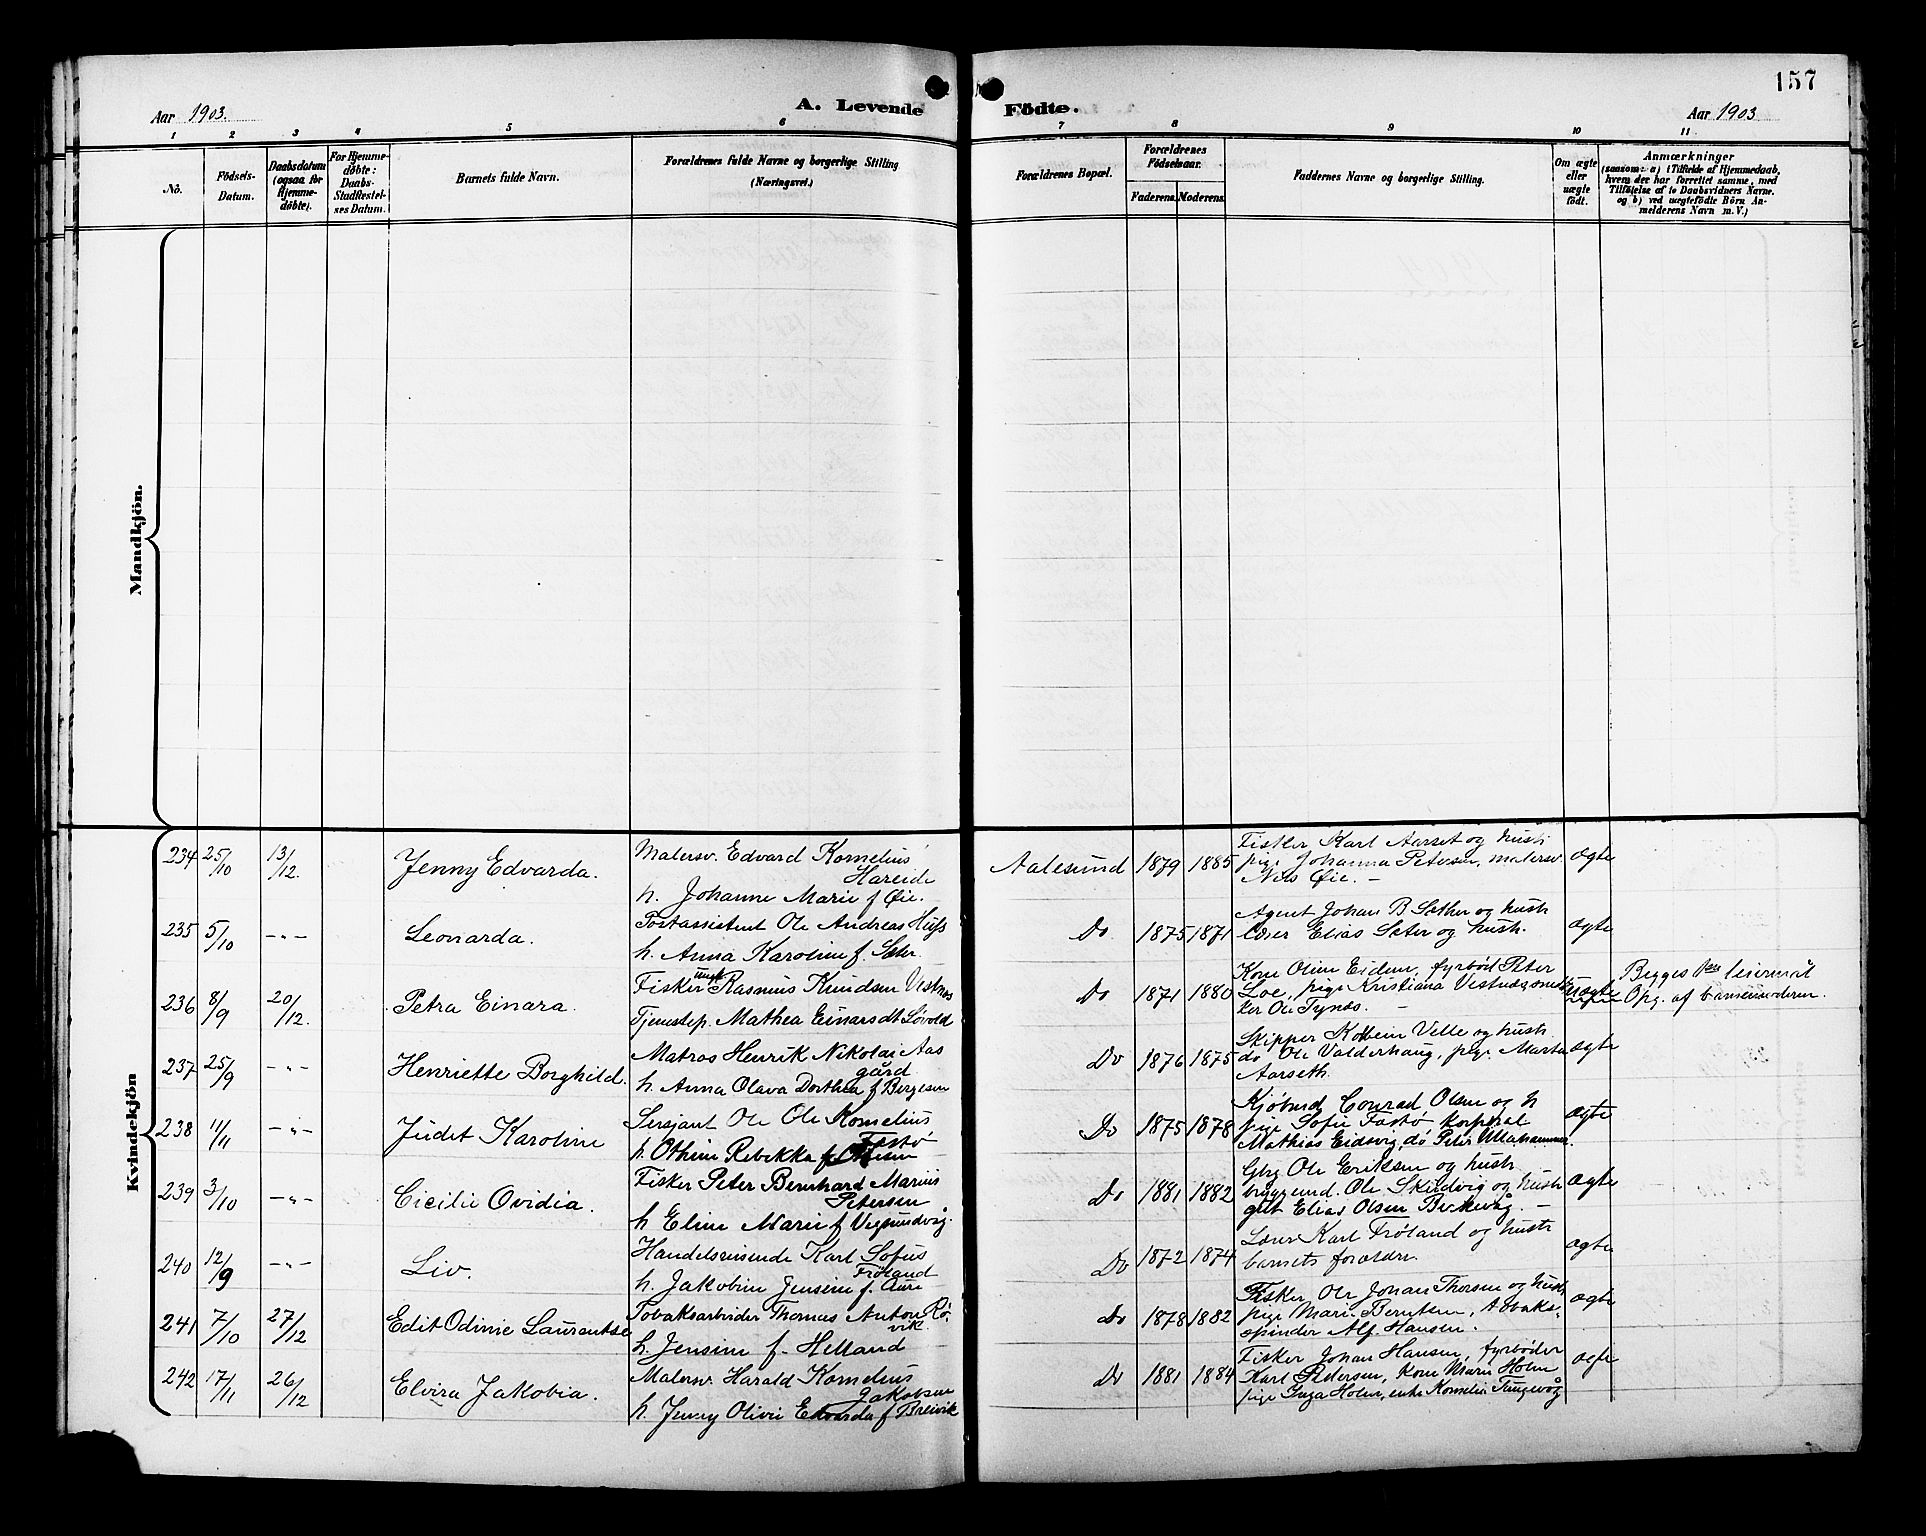 157
Aar 1903.
A. Levende Födte.
Aar 1903
1 2 3 4 5 6 7 8 9 10 11
No.
Födsels-
Datum.
Daabsdatum
(ogsaa for
Hjemme-
döbte).
For Hjemme-
döbte:
Daabs-
Stadfæstel-
ses Datum.
Barnets fulde Navn.
Forældrenes fulde Navne og borgerlige Stilling
(Næringsvei.)
Forældrenes Bopæl.
Forældrenes
Födselsaar.
Faderens. Moderens.
Faddernes Navne og borgerlige Stilling.
Om ægte
eller
uægte
födt.
Anmærkninger
(saasom: a) i Tilfælde af Hjemmedaab,
hvem der har forrettet samme, med
Tilföielse af to Daabsvidners Navne.
og b) ved uægtefödte Börn An-
melderens Navn m. V.)
Mandkjön.
Kvindekjön
234 25/10 13/12. Jenny Edvarda.
Malersv. Edvard Kornelius
Hareide
h. Johanne Marie f Øie.
Aalesund 1879 1885
Fisker Karl Aarset og hustr
pige Johanna Petersen, malersv.
Nils Øie. —
ægte
235 5/10 -"- Leonarda.
Postassistent Ole Andreas Hujs
h. Anna Karoline f. Sæter
Do. 1875 1871
Agent Johan B Sæther og hustr
Lærer Elias Sæter og hustr.
ægte
236 8/9 20/12. Petra Einara.
Fisker ungk Rasmus Knudsen Vestnæs
Tjenestep. Mathea Einarsdt Løvold
Do 1871 1880
Kone Oline Eidem, fyrbød Peter
Loe, pige Kristiana Vestnæs,
Ole Tynæs. —
uægte
Begges 1ste leiermål
Opg. af barnemoderen.
237 25/9 -"- Henriette Borghild.
Matros Henrik Nikolai Aas
gård
h. Anna Olava Dorthea f Bergesen
Do 1876 1875
Skipper Velle og hustr
do Ole Valderhaug, pige Marta
Aarseth.
ægte
238 11/11 -"- Judit Karoline
Sersjant Ole Ole Kornelius
Fastø
h. Othine Rebekka f Olsen
Do 1875 1878
Kjøbmd Conrad Olsen og h
pige Sofie Fastø korporal
Mathias Eidsvig, do Peter Ullahammer.
ægte
239 3/10 -"- Cicilie Ovidia.
Fisker Peter Bernhard Marius
Petersen
h Eline Marie f Vegsundvåg.
Do 1881 1882
Gbg Ole Eriksen og hustr
bryggemd. Ole Skudvig og hustr
gut Elias Olsen Birkevåg. —
ægte
240 12/9 -"- Liv.
Handelsreisende Karl Sofus
Frøland
h. Jakobine Jensine f. Aure
Do 1872 1874
Lærer Karl Frøland og hustr
barnets forældre.
ægte
241 7/10 27/12 Edit Odinie Laurentse
Tobaksarbeider Thomas Anton Rø-
vik.
h. Jensine f. Helland
Do 1878 1882
Fisker Ole Johan Thorsen og hustr,
pige Marie Berntsen, tobaks-
spinder Alf. Hansen.
ægte
242 17/11 26/12 Elvira Jakobia.
Malersv. Harald Kornelius
Jakobsen
h. Jenny Olivie Edvarda f Breivik
Do 1881 1884
Fisker Johan Hansen, fyrbøder
Karl Pedersen, kone Marie Holm
pige Inga Holm, enke Kornelia Tungevåg
ægte